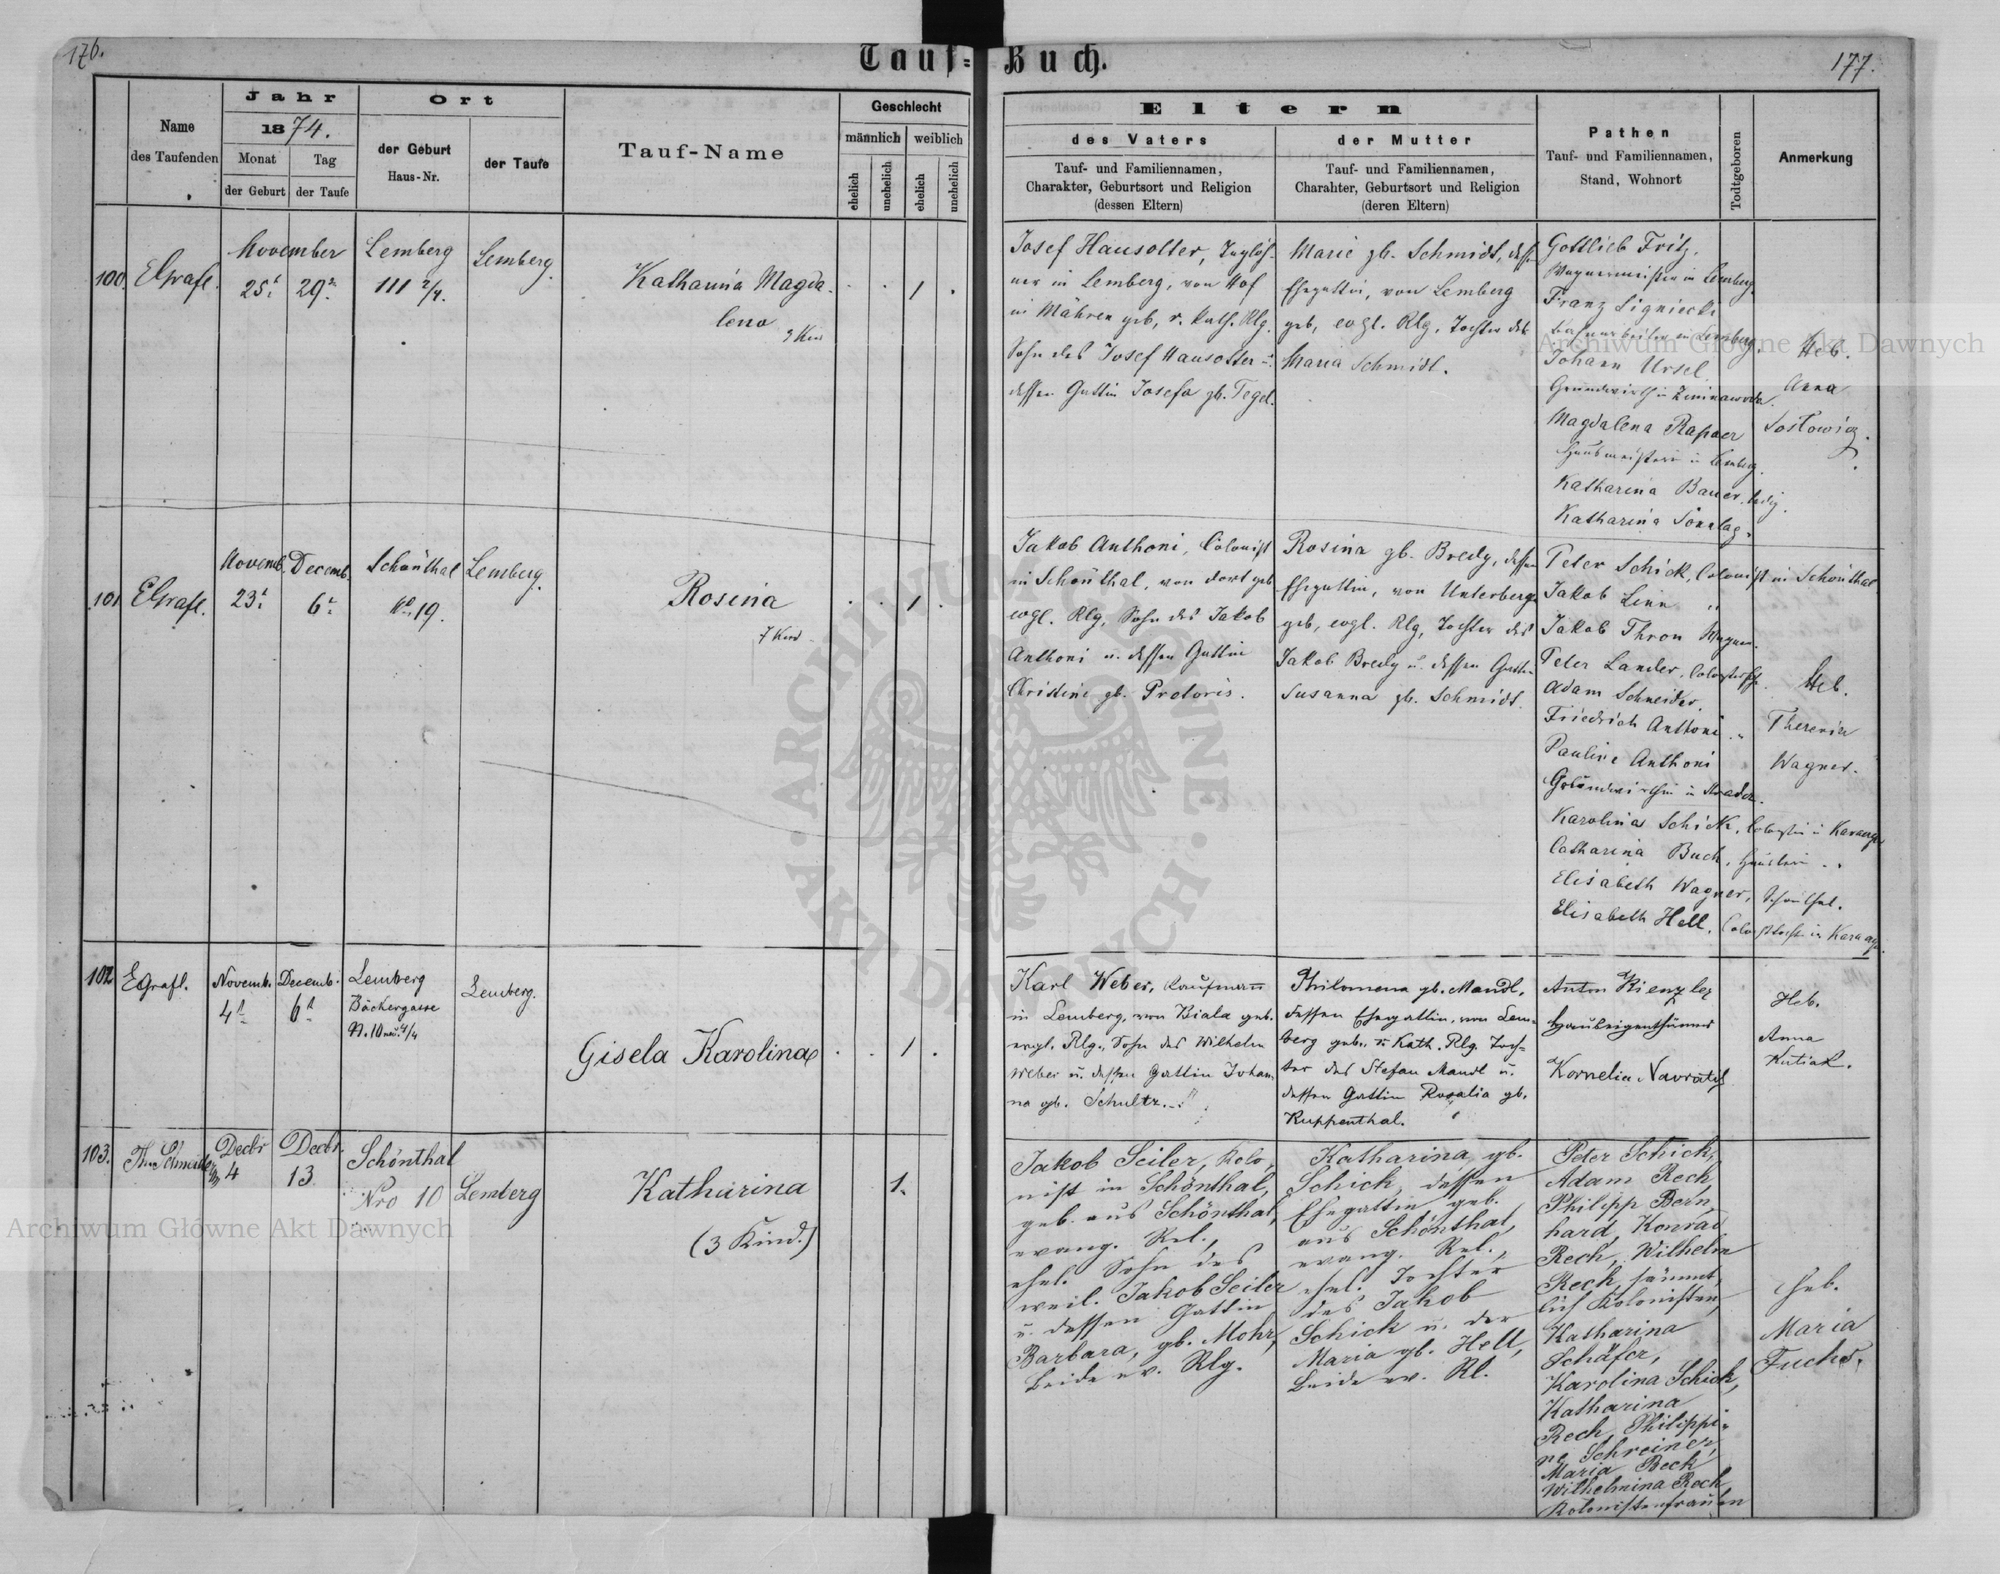 176.
Tauf=Buch.
177.
Name
des Taufenden
Jahr
1874.
Monat
Tag
der Geburt
der Taufe
Ort
der Geburt
Haus-Nr.
der Taufe
Tauf-Name
Geschlecht
männlich
weiblich
ehelich
unehelich
ehelich
unehelich
Eltern
des Vaters
Tauf- und Familiennamen,
Charakter, Geburtsort und Religion
(dessen Eltern)
der Mutter
Tauf- und Familiennamen,
Charahter, Geburtsort und Religion
(deren Eltern)
Pathen
Tauf- und Familiennamen,
Stand, Wohnort
Todtgeboren
Anmerkung
100.
EGrafl.
November
25t.
29n.
Lemberg
111 2/4.
Lemberg.
Katharina Magda-
lena
1
Josef Hausotter, Taglöh-
ner in Lemberg, von Hof
in Mähren geb, r. kath. Rlg.
Sohn des Josef Hausotter u.
dessen Gattin Josefa gb. Tegel.
Marie gb. Schmidt, dessen
Ehegattin, von Lemberg
geb, evgl. Rlg, Tochter der
Maria Schmidt.
Gottlieb Fritz,
Wagnermeister in Lemberg.
Franz Signiecki
in Lemberg.
Johann Ursel
Grundwirth in Zimnawoda.
Magdalena Rapaer
Hausmeisterin in Lemberg.
Katharina Bauer, ledig.
Katharina Sonntag.
Heb.
Anna
101
EGrafl.
Novemb.
23t.
Decemb.
6t.
Schönthal
No. 19.
Lemberg.
Rosina
7 Kind
1
Jakob Anthoni, Colonist
in Schönthal, von dort geb
evgl. Rlg, Sohn des Jakob
Anthoni u. dessen Gattin
Christine gb. Pretoris.
Rosina gb. Bredy, dessen
Ehegattin, von Unterbergen
geb, evgl. Rlg, Tochter des
Jakob Bredy u. dessen Gattin
Susanna gb. Schmidt.
Peter Schick, Colonist in Schönthal
Jakob Linn "
Jakob Thron Wagner.
Peter Lander,
Adam Schneider,
Friedrich Anthoni "
Pauline Anthoni
Grundwirthin in
Karolina Schick,
Catharina Buch,
Elisabeth Wagner, Schönthal.
Elisabeth Hell,
Heb.
Theresia
Wagner.
102
EGrafl.
Novemb.
4t.
Decemb.
6t.
Lemberg
Bäckergasse
N. 10 neu 4/4
Lemberg.
Gisela Karolina
1
Karl Weber, Kaufmann
in Lemberg, von Biala geb.
evgl. Rlg., Sohn des Wilhelm
Weber u. dessen Gattin Johan-
na gb. Schultz.
Philomena gb. Mandl,
dessen Ehegattin, von Lem-
berg geb. r. kath. Rlg. Toch-
ter des Stefan Mandl u.
dessen Gattin Rosalia gb.
Ruppenthal.
Anton Kienzler
Hauseigenthümer
Kornelia Navratil
Heb.
Anna
Kutiak.
103.
Th. Schneider
Decbr
4
Decbr.
13
Schönthal
Nro 10
Lemberg
Katharina
(3 Kind.)
1.
Jakob Seiler, Kolo-
nist in Schönthal,
geb. aus Schönthal,
evang. Rel.,
ehel. Sohn des
weil. Jakob Seiler
u. dessen Gattin
Barbara, gb. Mohr,
beide ev. Rlg.
Katharina, gb.
Schick, dessen
Ehegattin geb.
aus Schönthal,
evang. Rel.,
ehel. Tochter
des Jakob
Schick u. der
Maria gb. Hell,
beide ev. Rl.
Peter Schick,
Adam Rech,
Philipp Bern-
hard, Konrad
Rech, Wilhelm
Rech, sämmt-
lich Kolonisten,
Katharina
Schäfer,
Karolina Schick,
Katharina
Rech, Philippi-
ne Schreiner,
Maria Beck
Wilhelmina Rech
Kolonistenfrauen
Heb.
Maria
Fuchs.
Archiwum Główne Akt Dawnych
Archiwum Główne Akt Dawnych
ARCHIWUM GŁÓWNE · AKT DAWNYCH ·